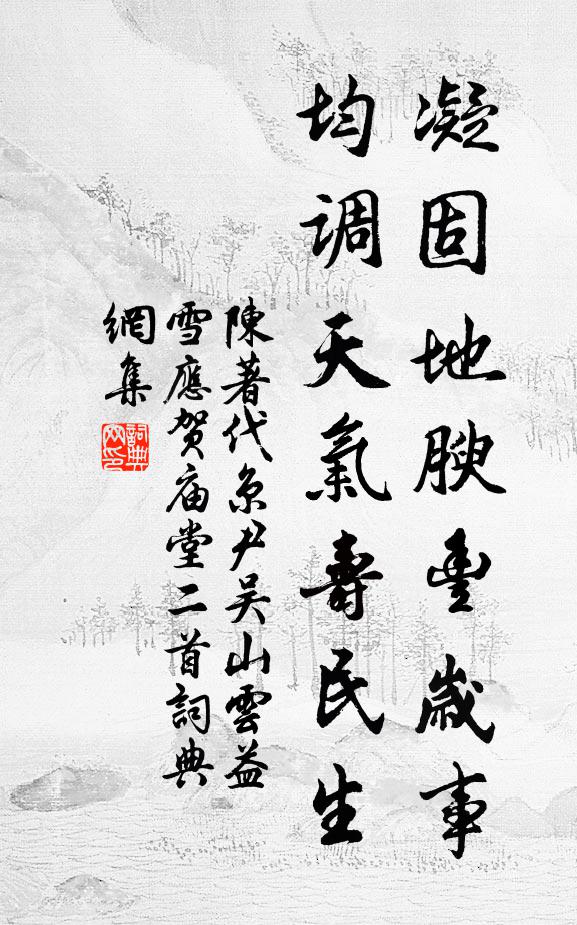 凝固地腴豐歲事
均調天氣壽民生
陳著代京尹吳山雲益
雪應賀庙堂二首詞典
網集
詞典
网印